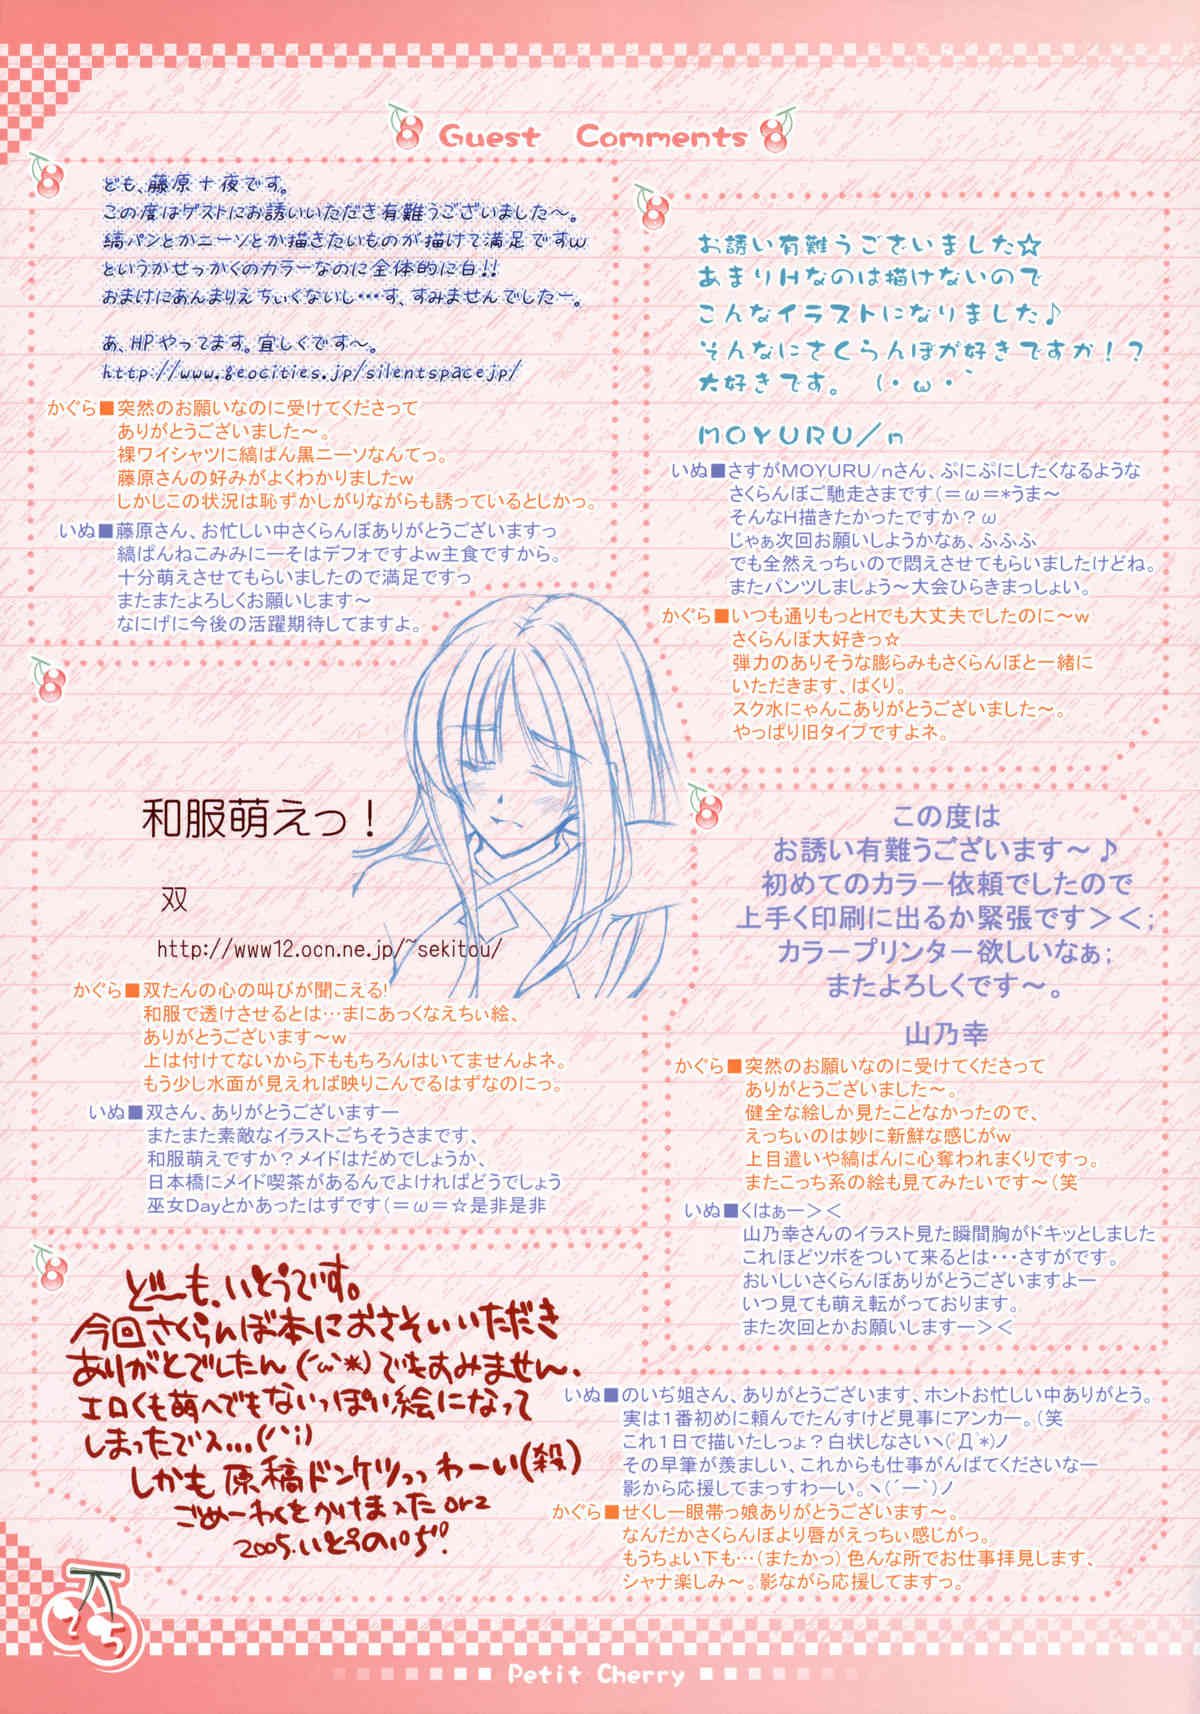 Guest Comments
ども、藤原十夜です。
この度はゲストにお誘いいただき有難うございました～。
縞パンとかニーソとか描きたいものが描けて満足ですw
というかせっかくのカラーなのに全体的に白!!
おまけにあんまりえちぃくないし…す、すみませんでしたー。
あ、HPやってます。宜しくです～。
http://www.geocities.jp/silentspacejp/
かぐら■突然のお願いなのに受けてくださって
ありがとうございました～。
裸ワイシャツに縞ぱん黒ニーソなんてっ。
藤原さんの好みがよくわかりましたw
しかしこの状況は恥ずかしがりながらも誘っているとしかっ。
いぬ■藤原さん、お忙しい中さくらんぼありがとうございますっ
縞ぱんねこみみにーそはデフォですよw主食ですから。
十分萌えさせてもらいましたので満足ですっ
またまたよろしくお願いします～
なにげに今後の活躍期待してますよ。
お誘い有難うございました☆
あまりHなのは描けないので
こんなイラストになりました♪
そんなにさくらんぼが好きですか！？
大好きです。　（・ω・｀
MOYURU/n
いぬ■さすがMOYURU/nさん、ぷにぷにしたくなるような
さくらんぼご馳走さまです(＝ω＝*うま～
そんなH描きたかったですか？ω
じゃぁ次回お願いしようかなぁ、ふふふ
でも全然えっちぃので悶えさせてもらいましたけどね。
またパンツしましょう～大会ひらきまっしょい。
かぐら■いつも通りもっとHでも大丈夫でしたのに～w
さくらんぼ大好きっ☆
弾力のありそうな膨らみもさくらんぼと一緒に
いただきます、ぱくり。
スク水にゃんこありがとうございました～。
やっぱり旧タイプですよネ。
和服萌えっ！
双
http://www12.ocn.ne.jp/~sekitou/
かぐら■双たんの心の叫びが聞こえる!
和服で透けさせるとは…まにあっくなえちぃ絵、
ありがとうございます～w
上は付けてないから下ももちろんはいてませんよネ。
もう少し水面が見えれば映りこんでるはずなのにっ。
いぬ■双さん、ありがとうございますー
またまた素敵なイラストごちそうさまです、
和服萌えですか？メイドはだめでしょうか、
日本橋にメイド喫茶があるんでよければどうでしょう
巫女Dayとかあったはずです(＝ω＝☆是非是非
この度は
お誘い有難うございます～♪
初めてのカラー依頼でしたので
上手く印刷に出るか緊張です＞＜;
カラープリンター欲しいなぁ;
またよろしくです～。
山乃幸
かぐら■突然のお願いなのに受けてくださって
ありがとうございました～。
健全な絵しか見たことなかったので、
えっちぃのは妙に新鮮な感じがw
上目遣いや縞ぱんに心奪われまくりですっ。
またこっち系の絵も見てみたいです～(笑
いぬ■くはぁー＞＜
山乃幸さんのイラスト見た瞬間胸がドキッとしました
これほどツボをついて来るとは・・・さすがです。
おいしいさくらんぼありがとうございますよー
いつ見ても萌え転がっております。
また次回とかお願いしますー＞＜
どーも、いとうです。
今回さくらんぼ本におさそいいただき
ありがとでしたん(´ω`*)でもすみません、
エロくも萌へでもないっぽい絵になって
しまったでス...(^^;)
しかも原稿ドンケツっっ わーい(殺)
ごめーわくをかけまスた orz
2005.いとうのいぢ!
いぬ■のいぢ姐さん、ありがとうございます、ホントお忙しい中ありがとう。
実は1番初めに頼んでたんすけど見事にアンカー。(笑
これ1日で描いたしょ？白状しなさいヽ(`Д´*)ノ
その早筆が羨ましい、これからも仕事がんばてくださいなー
影から応援してまっすわーい。ヽ(´ー｀)ノ
かぐら■せくしー眼帯っ娘ありがとうございます～。
なんだかさくらんぼより唇がえっちぃ感じがっ。
もうちょい下も…(またかっ)色んな所でお仕事拝見します、
シャナ楽しみ～。影ながら応援してますっ。
25
Petit Cherry